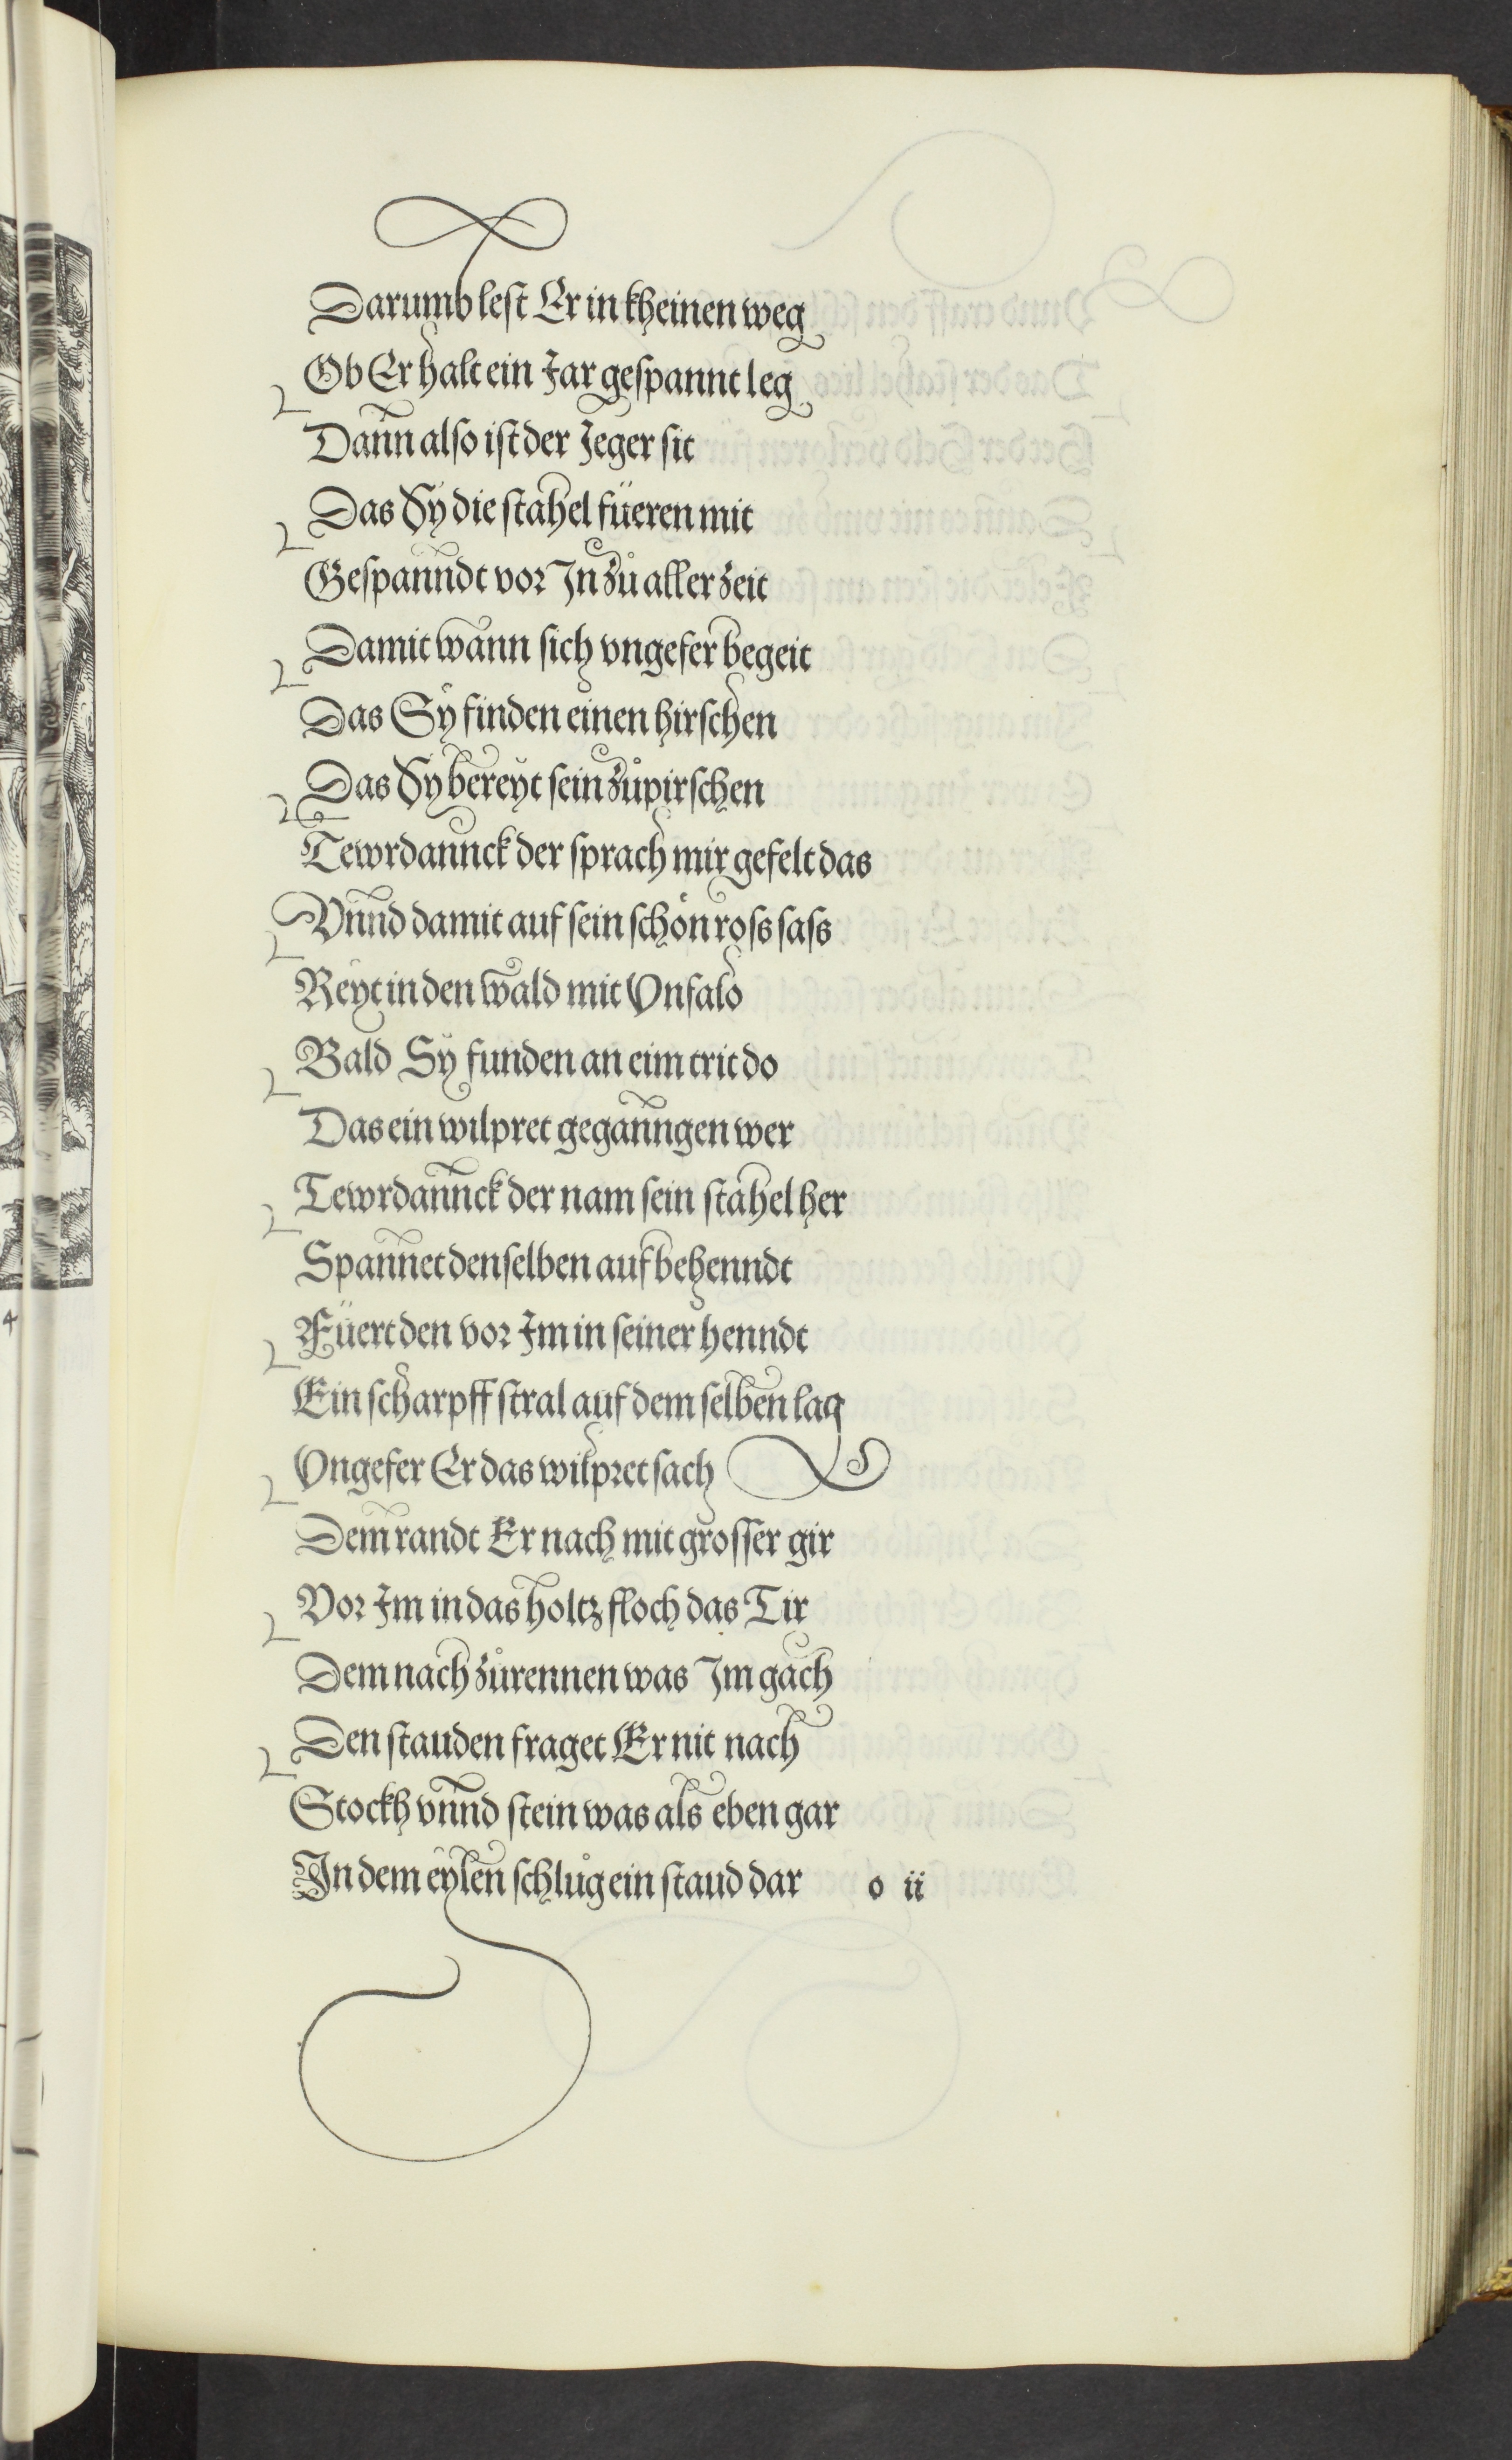 Darumb lest Er in kheinen weg
Ob Er halt ein Jar gespannt leg
Dann also ist der Jeger sit
Das Sy die stahel füeren mit
Gespanndt vor In zů aller zeit
Damit wann sich vngefer begeit
Das Sy finden einen hirschen
Das Sy bereyt sein zůpirschen
Tewrdannck der sprach mir gefelt das
Vnnd damit auf sein schön ross sass
Reyt in den wald mit Vnfalo
Bald Sy funden an eim trit do
Das ein wilpret geganngen wer
Tewrdannck der nam sein stahel her
Spannet denselben auf behenndt
Füert den vor Im in seiner henndt
Ein scharpff stral auf dem selben lag
Vngefer Er das wilpret sach
Dem randt Er nach mit grosser gir
Vor Im in das holtz floch das Tir
Dem nach zůrennen was Im gach
Den stauden fraget Er nit nach
Stockh vnnd stein was als eben gar
In dem eylen schlůg ein staud dar o ii